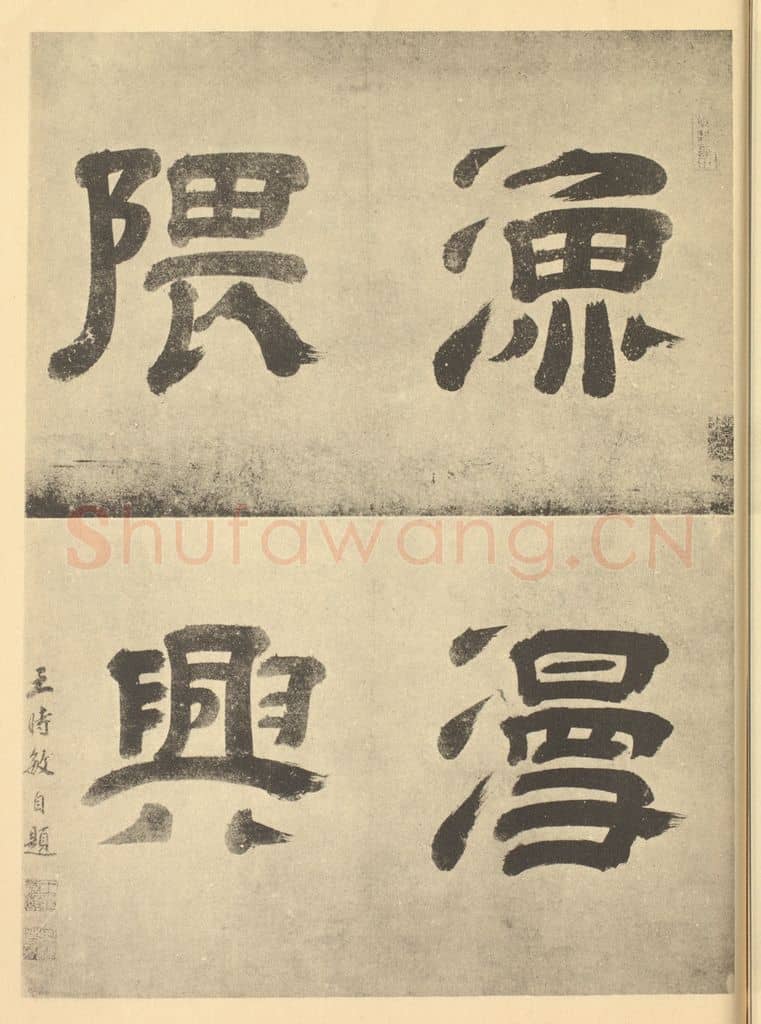 漁隈
漫興
王時敏自題
Shufawang.CN